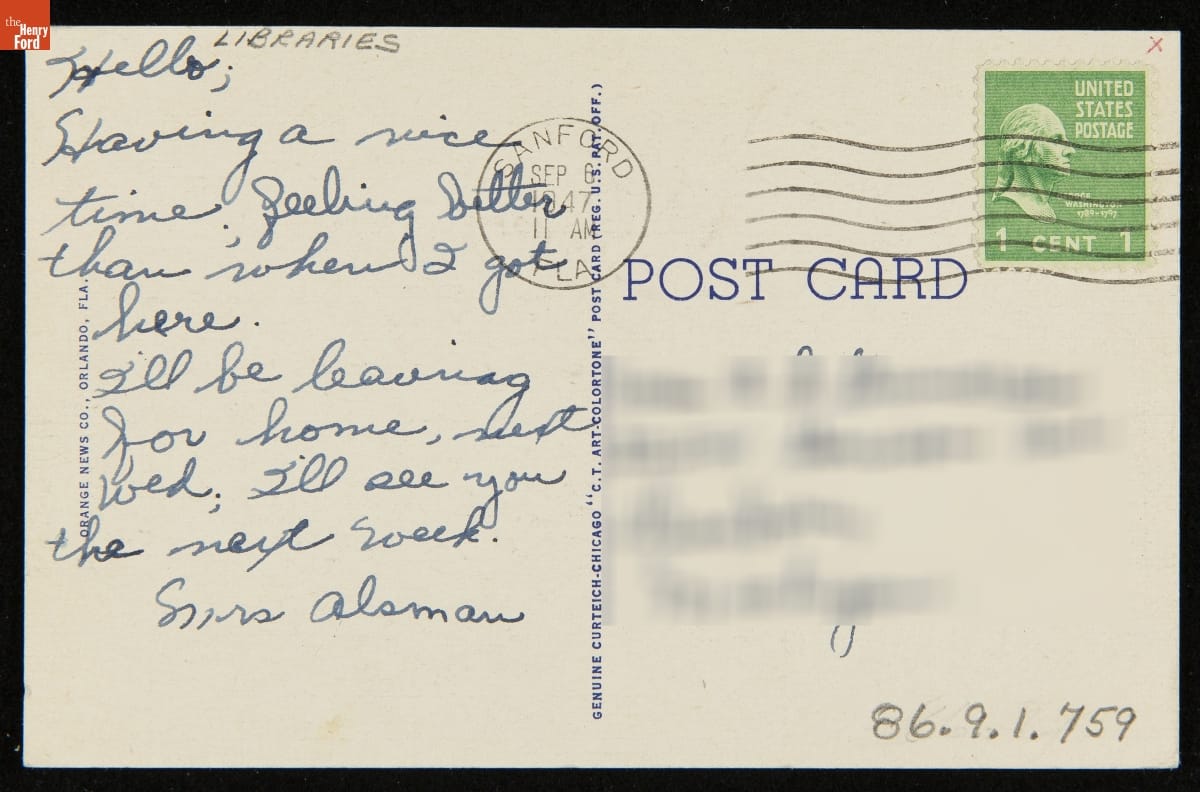 the
Henry
Ford
LIBRARIES
x
Hello;
Having a nice
time. Feeling better
than when I got
here.
I'll be leaving
for home, next
Wed; I'll see you
the next week.
Mrs Alsman
ORANGE NEWS CO., ORLANDO, FLA.
GENUINE CURTEICH-CHICAGO "C.T. ART-COLORTONE" POST CARD (REG. U.S. PAT. OFF.)
SANFORD
SEP 6
1947
11 AM
FLA
UNITED
STATES
POSTAGE
GEORGE
WASHINGTON
1789-1797
1 CENT 1
POST CARD
86.9.1.759